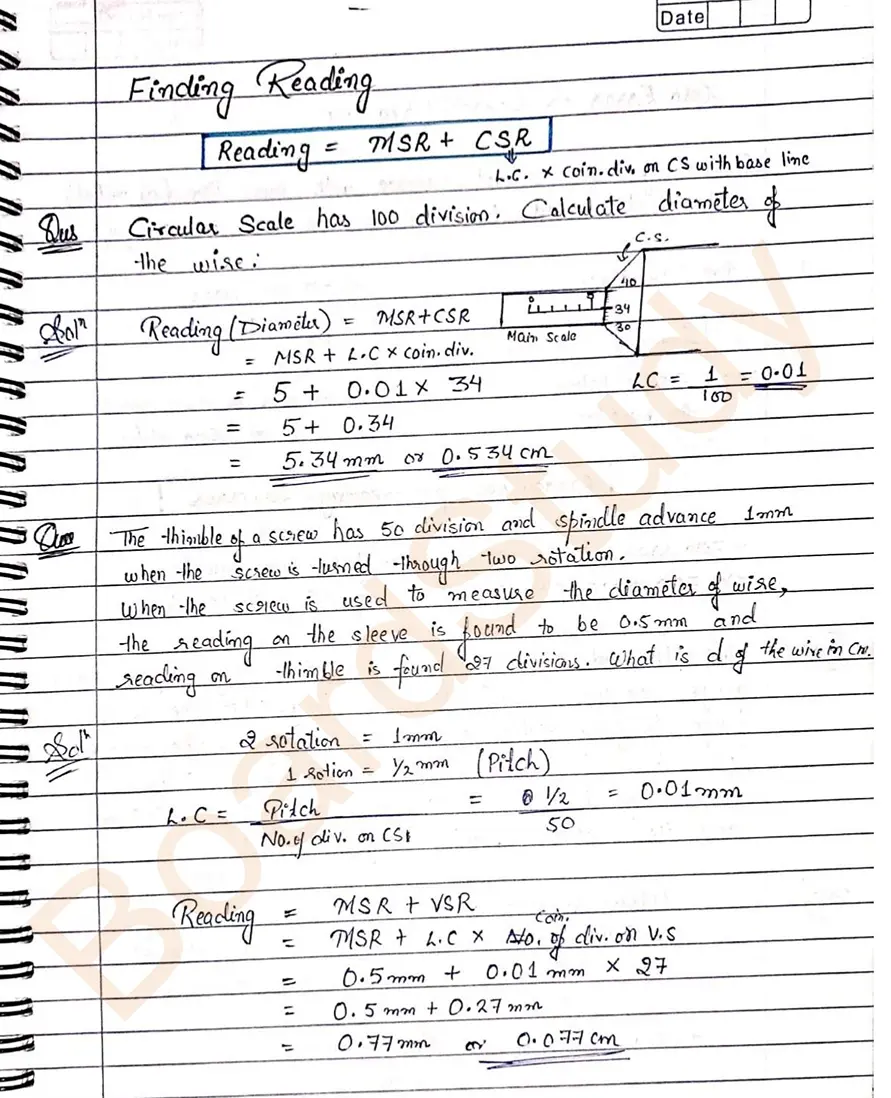 Date
Finding Reading
Reading = MSR + CSR
L.C. × coin. div. on CS with base line
Qus Circular Scale has 100 division. Calculate diameter of
the wire:
C.S.
40
34
30
0
Main Scale
Solⁿ Reading (Diameter) = MSR+CSR
= MSR + L.C × coin. div.
= 5 + 0.01 × 34
LC = 1/100 = 0.01
= 5 + 0.34
= 5.34 mm or 0.534 cm
Que The thimble of a screw has 50 division and spindle advance 1mm
when the screw is turned through two rotation.
When the screw is used to measure the diameter of wire,
the reading on the sleeve is found to be 0.5mm and
reading on thimble is found 27 divisions. What is d of the wire in cm.
Solⁿ 2 rotation = 1mm
1 rotion = 1/2 mm (Pitch)
L.C = Pitch/No. of div. on CS = 1/2/50 = 0.01mm
Reading = MSR + VSR
= MSR + L.C × coin. No. of div. on V.S
= 0.5mm + 0.01 mm × 27
= 0.5 mm + 0.27 mm
= 0.77 mm or 0.077 cm
BoardStudy